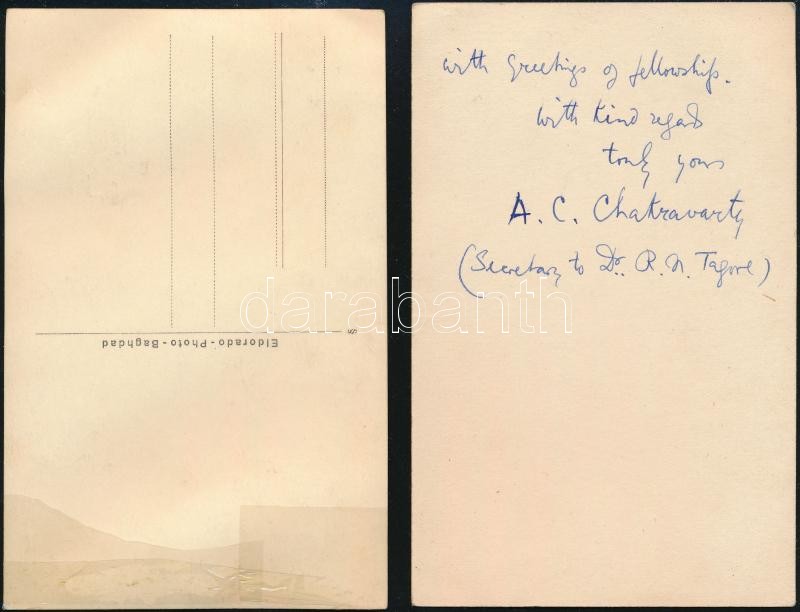 Eldorado - Photo - Baghdad
with greetings of fellowship.
with kind regards
truly yours
A. C. Chakravarty
(Secretary to Dr. R. N. Tagore)
darabanth